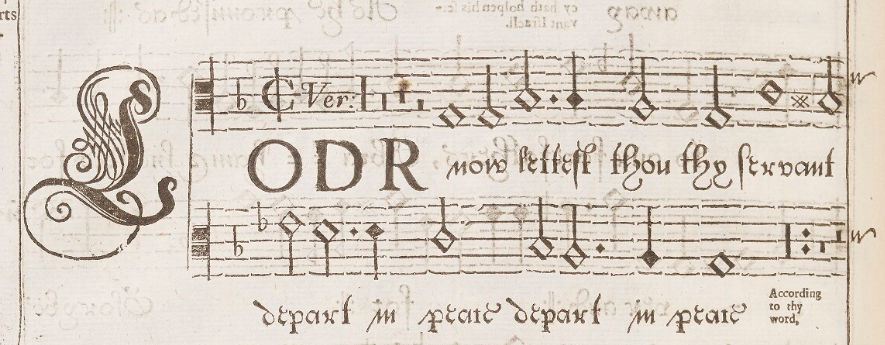 Ver:
LORD now lettest thou thy servant
depart in peace depart in peace
According
to thy
word,